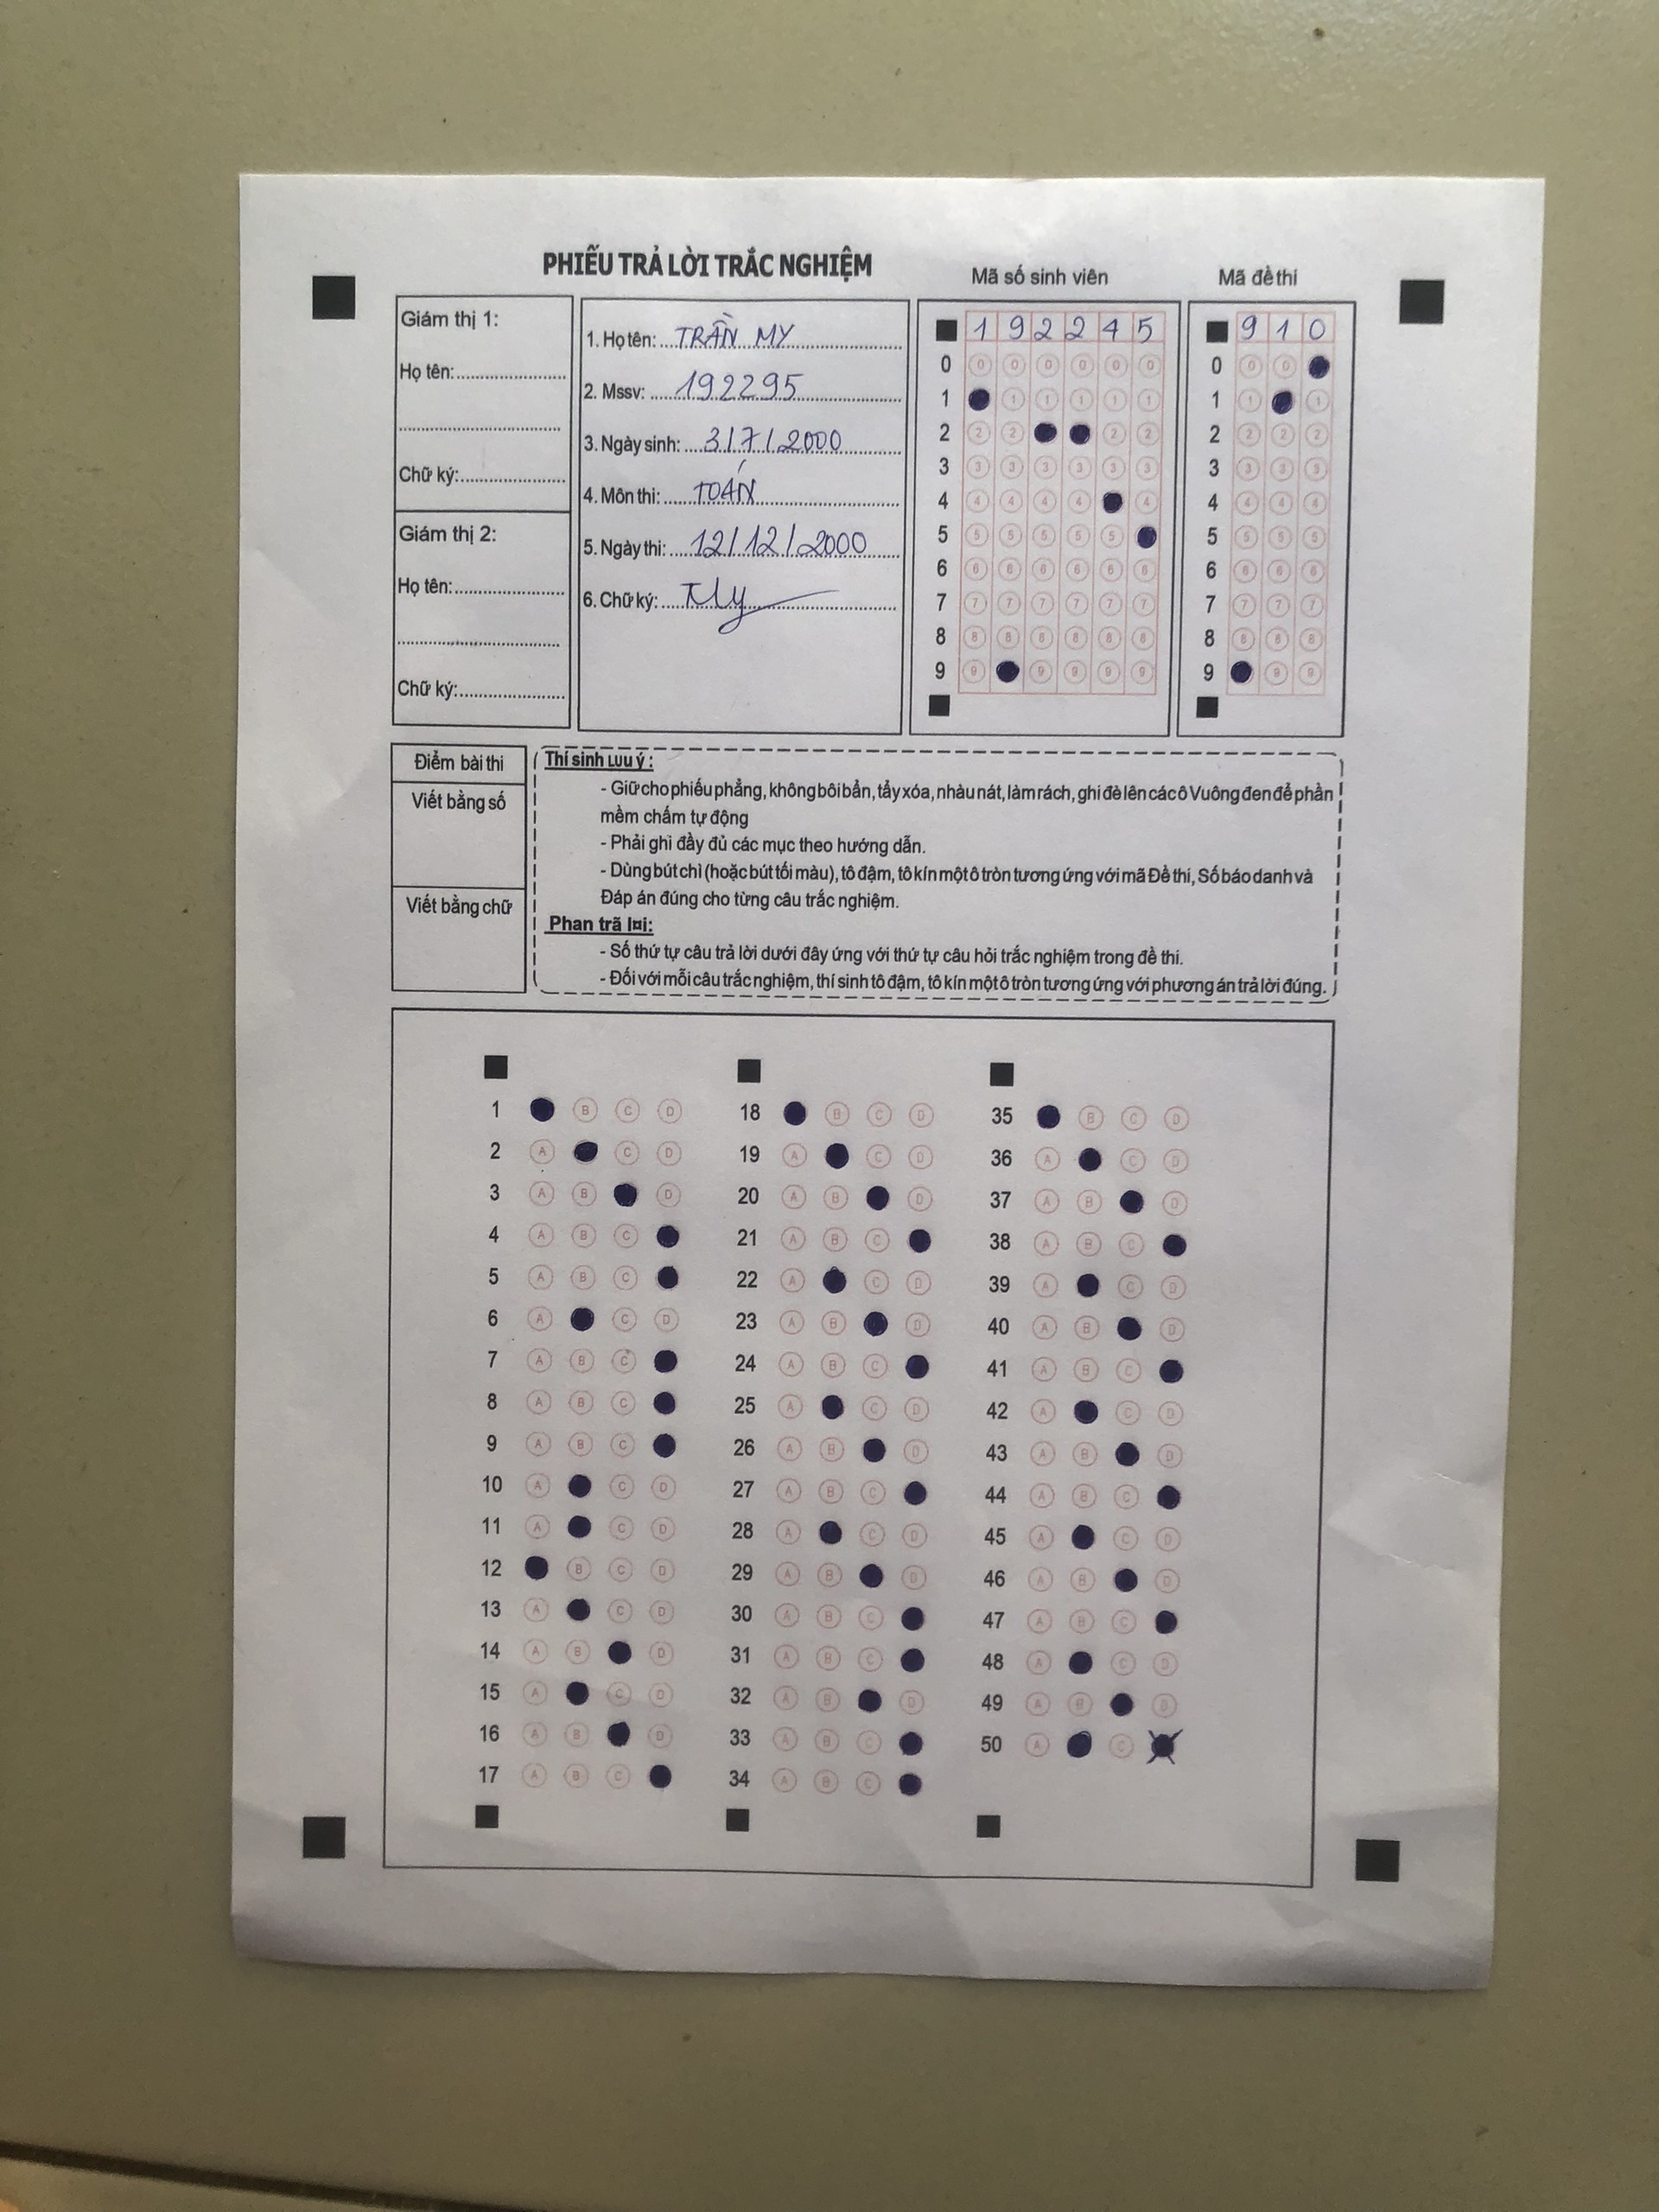 PHIẾU TRẢ LỜI TRẮC NGHIỆM
Giám thị 1:
Họ tên:
Chữ ký:
Giám thị 2:
Họ tên:
Chữ ký:
1. Họ tên: TRẦN MY
2. Mssv: 192295
3. Ngày sinh: 3/7/2000
4. Môn thi: TOÁN
5. Ngày thi: 12/12/2000
6. Chữ ký: My
Mã số sinh viên
1 9 2 2 4 5
0 0 0 0 0 0 0
1 1 1 1 1 1
2 2 2 2 2
3 3 3 3 3 3 3
4 4 4 4 4 4
5 5 5 5 5 5
6 6 6 6 6 6 6
7 7 7 7 7 7 7
8 8 8 8 8 8 8
9 9 9 9 9 9
Mã đề thi
9 1 0
0 0 0
1 1 1
2 2 2 2
3 3 3 3
4 4 4 4
5 5 5 5
6 6 6 6
7 7 7 7
8 8 8 8
9 9 9
Điểm bài thi
Viết bằng số
Viết bằng chữ
Thí sinh Lưu ý:
- Giữ cho phiếu phẳng, không bôi bẩn, tẩy xóa, nhàu nát, làm rách, ghi đè lên các ô Vuông đen để phần
mềm chấm tự động
- Phải ghi đầy đủ các mục theo hướng dẫn.
- Dùng bút chì (hoặc bút tối màu), tô đậm, tô kín một ô tròn tương ứng với mã Đề thi, Số báo danh và
Đáp án đúng cho từng câu trắc nghiệm.
Phan trã l¤i:
- Số thứ tự câu trả lời dưới đây ứng với thứ tự câu hỏi trắc nghiệm trong đề thi.
- Đối với mỗi câu trắc nghiệm, thí sinh tô đậm, tô kín một ô tròn tương ứng với phương án trả lời đúng.
1 B C D
2 A C D
3 A B D
4 A B C
5 A B C
6 A C D
7 A B C
8 A B C
9 A B C
10 A C D
11 A C D
12 B C D
13 A C D
14 A B D
15 A C D
16 A B D
17 A B C
18 B C D
19 A C D
20 A B D
21 A B C
22 A C D
23 A B D
24 A B C
25 A C D
26 A B D
27 A B C
28 A C D
29 A B D
30 A B C
31 A B C
32 A B D
33 A B C
34 A B C
35 B C D
36 A C D
37 A B D
38 A B C
39 A C D
40 A B D
41 A B C
42 A C D
43 A B D
44 A B C
45 A C D
46 A B D
47 A B C
48 A C D
49 A B D
50 A C